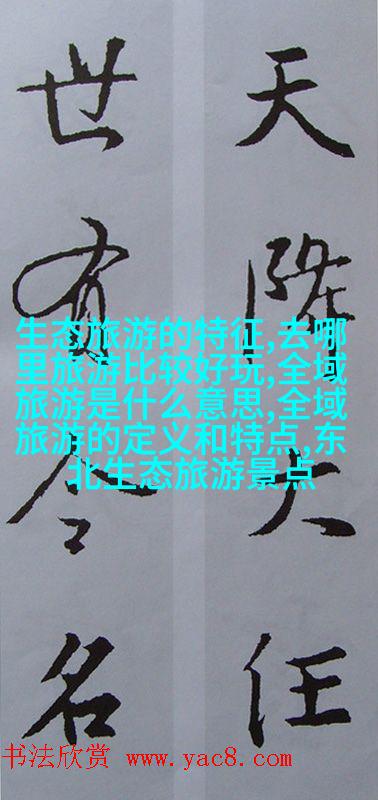 天降大任
世有令名
生态旅游的特征,去哪
里旅游比较好玩,全域
旅游是什么意思,全域
旅游的定义和特点,东
北生态旅游景点
书法欣赏 www.yac8.com